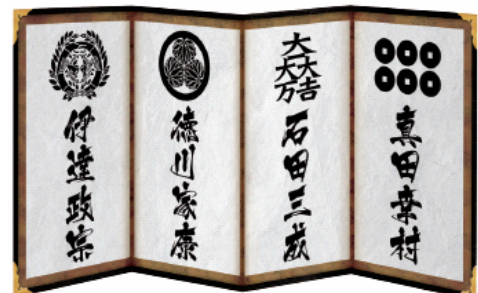 真田幸村
大一大万大吉
石田三成
徳川家康
伊達政宗